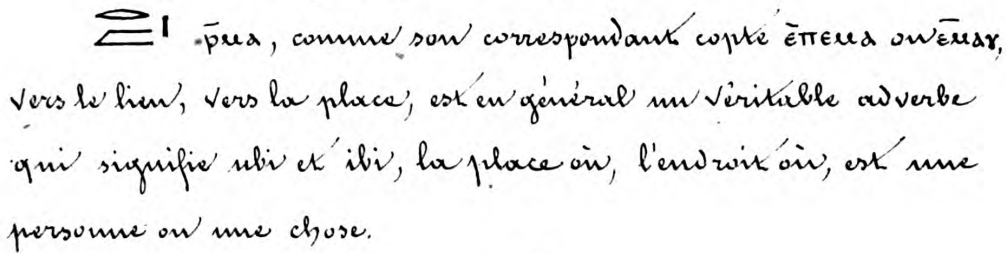 𓂋𓐝𓏤 ⲣ̄ⲙⲁ, comme son correspondant copte ⲉ̄ⲡⲉⲙⲁ ou ⲉ̄ⲙⲁⲩ,
vers le lieu, vers la place, est en général un véritable adverbe
qui signifie ubi et ibi, la place où, l'endroit où, est une
personne ou une chose.